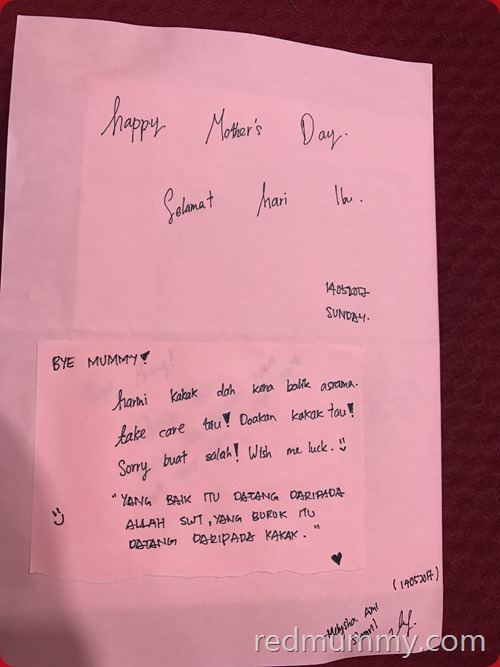 happy Mother's Day.
Selamat hari Ibu.
14052017
SUNDAY.
BYE MUMMY!
harini kakak dah kena balik asrama.
take care tau! Doakan kakak tau!
Sorry buat salah! Wish me luck. :)
"YANG BAIK ITU DATANG DARIPADA
ALLAH SWT, YANG BURUK ITU
DATANG DARIPADA KAKAK."
(14052017)
redmummy.com